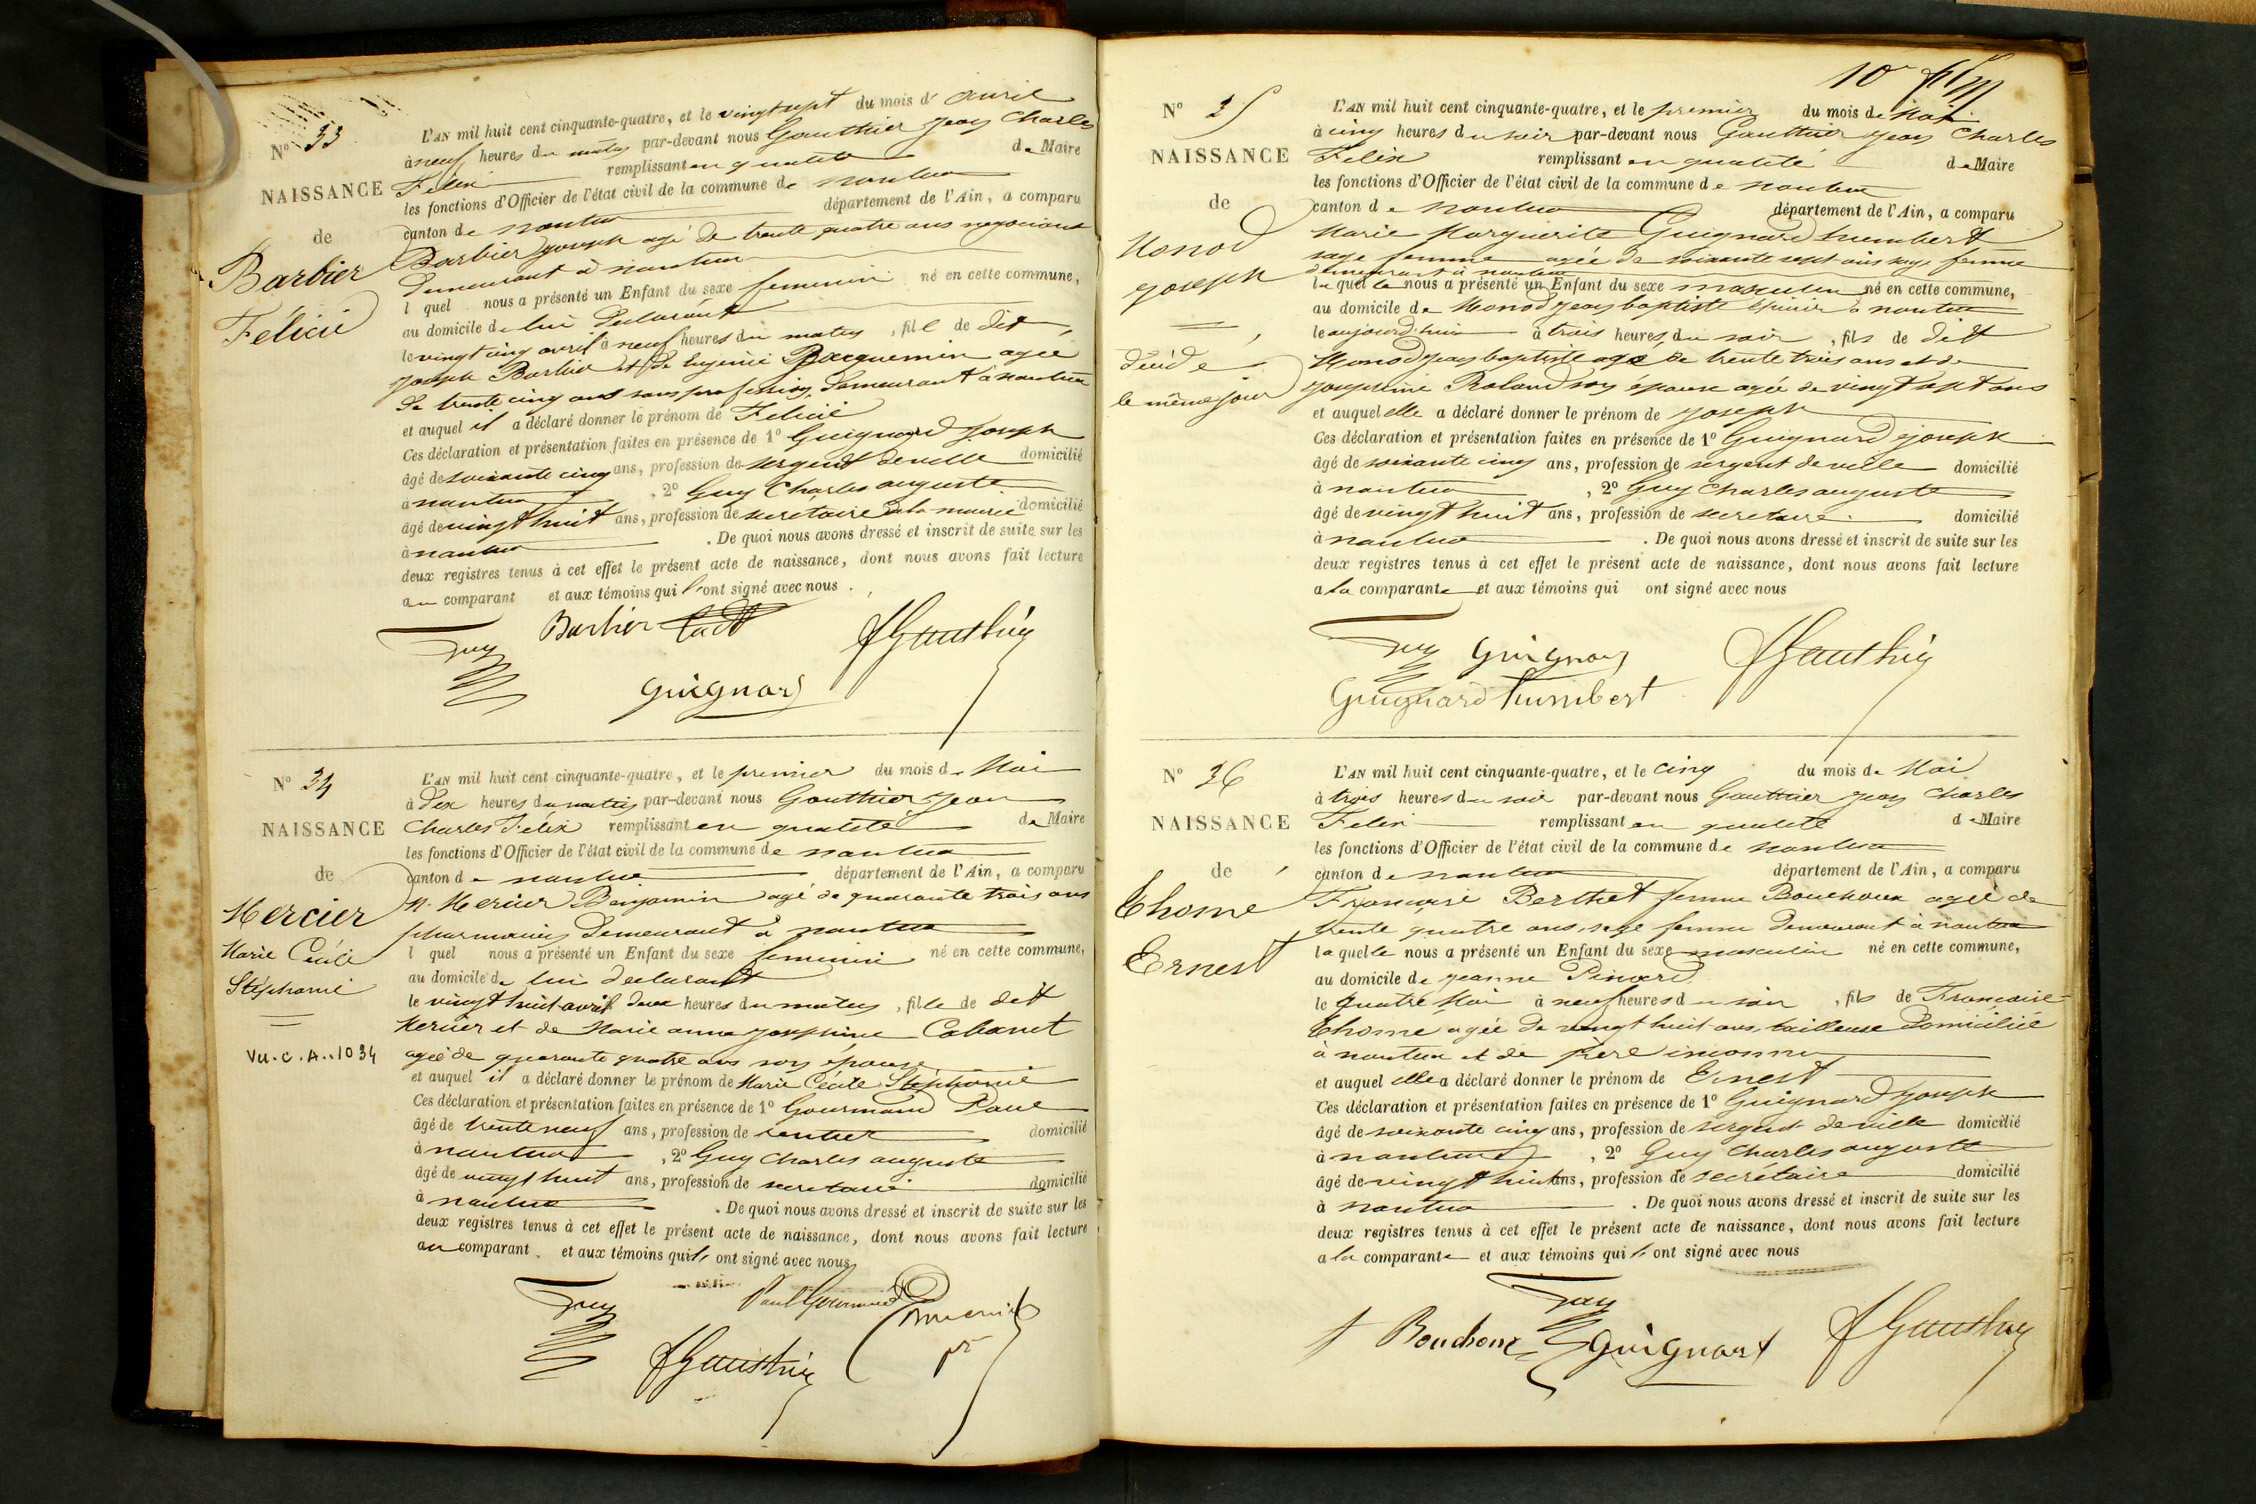 N° 33
NAISSANCE
de
Barbier
Félicie
L'AN mil huit cent cinquante-quatre, et le vingt sept du mois d' avril
à neuf heures du matin par-devant nous Gauthier Jean Charles
Felix remplissant en qualité de Maire
les fonctions d'Officier de l'état civil de la commune de nantua
canton de nantua département de l'Ain, a comparu
Barbier Joseph agé de trente quatre ans negociant
demeurant à nantua
l quel nous a présenté un Enfant du sexe feminin né en cette commune,
au domicile de lui declarant
le vingt cinq avril à neuf heures du matin, fille de dit
Joseph Barbier et de Eugenie Jacquemin agée
de trente cinq ans sans profession, demeurant à nantua
et auquel il a déclaré donner le prénom de Felicie
Ces déclaration et présentation faites en présence de 1° Guignard Joseph
âgé de soixante cinq ans, profession de sergent de ville domicilié
à nantua, 2° Guy Charles auguste
âgé de vingt huit ans, profession de secretaire de la mairie domicilié
à nantua. De quoi nous avons dressé et inscrit de suite sur les
deux registres tenus à cet effet le présent acte de naissance, dont nous avons fait lecture
au comparant et aux témoins qui l'ont signé avec nous.
Barbier cadt
Guy
JGauthier
Guignard
N° 34
NAISSANCE
de
Mercier
Marie Cécile
Stéphanie
Vu. C. A.. 1034
L'AN mil huit cent cinquante-quatre, et le premier du mois de Mai
à dix heures du matin par-devant nous Gauthier Jean
Charles Félix remplissant en qualité de Maire
les fonctions d'Officier de l'état civil de la commune de nantua
canton de nantua département de l'Ain, a comparu
M. Mercier Benjamin agé de quarante trois ans
pharmacien demeurant à nantua
l quel nous a présenté un Enfant du sexe feminin né en cette commune,
au domicile de lui declarant
le vingt huit avril deux heures du matin, fille de dit
Mercier et de Marie anne Josephine Cabanet
agée de quarante quatre ans son épouse
et auquel il a déclaré donner le prénom de Marie Cécile Stéphanie
Ces déclaration et présentation faites en présence de 1° Gourmand Paul
âgé de trente neuf ans, profession de rentier domicilié
à nantua, 2° Guy Charles auguste
âgé de vingt huit ans, profession de secretaire domicilié
à nantua. De quoi nous avons dressé et inscrit de suite sur les
deux registres tenus à cet effet le présent acte de naissance, dont nous avons fait lecture
au comparant. et aux témoins qui l' ont signé avec nous
Guy
Paul Gourmand
JGauthier
Bmercier
pn
10e f
N° 35
NAISSANCE
de
Monod
Joseph
décédé
le même jour
L'AN mil huit cent cinquante-quatre, et le premier du mois de Mai
à cinq heures du soir par-devant nous Gauthier Jean Charles
Felix remplissant en qualité de Maire
les fonctions d'Officier de l'état civil de la commune de nantua
canton de nantua département de l'Ain, a comparu
Marie Marguerite Guignard humbert
sage femme agée de soixante sept ans sage femme
demeurant à nantua
laquelle nous a présenté un Enfant du sexe masculin né en cette commune,
au domicile de Monod Jean baptiste épicier à nantua
le aujourd'hui à trois heures du soir, fils de dit
Monod Jean baptiste agé de trente trois ans et de
Josephine Roland son épouse agée de vingt sept ans
et auquel elle a déclaré donner le prénom de Joseph
Ces déclaration et présentation faites en présence de 1° Guignard Joseph
âgé de soixante cinq ans, profession de sergent de ville domicilié
à nantua, 2° Guy Charles auguste
âgé de vingt huit ans, profession de secretaire domicilié
à nantua. De quoi nous avons dressé et inscrit de suite sur les
deux registres tenus à cet effet le présent acte de naissance, dont nous avons fait lecture
a la comparante et aux témoins qui ont signé avec nous
Guy Guignard JGauthier
Guignard humbert
N° 36
NAISSANCE
de
Thomé
Ernest
L'AN mil huit cent cinquante-quatre, et le cinq du mois de Mai
à trois heures du soir par-devant nous Gauthier Jean Charles
Felix remplissant en qualité de Maire
les fonctions d'Officier de l'état civil de la commune de nantua
canton de nantua département de l'Ain, a comparu
Francoise Berthet femme Bouchoux agée de
trente quatre ans, sage femme demeurant à nantua
laquelle nous a présenté un Enfant du sexe masculin né en cette commune,
au domicile de Jeanne
le quatre Mai à neuf heures du soir, fils de Francoise
Thomé agée de vingt huit ans, tailleuse domiciliée
à nantua et de père inconnu
et auquel elle a déclaré donner le prénom de Ernest
Ces déclaration et présentation faites en présence de 1° Guignard Joseph
âgé de soixante cinq ans, profession de sergent de ville domicilié
à nantua, 2° Guy Charles auguste
âgé de vingt huit ans, profession de secrétaire domicilié
à nantua. De quoi nous avons dressé et inscrit de suite sur les
deux registres tenus à cet effet le présent acte de naissance, dont nous avons fait lecture
a la comparante et aux témoins qui l' ont signé avec nous
Guy
f Bouchoux Guignard JGauthier